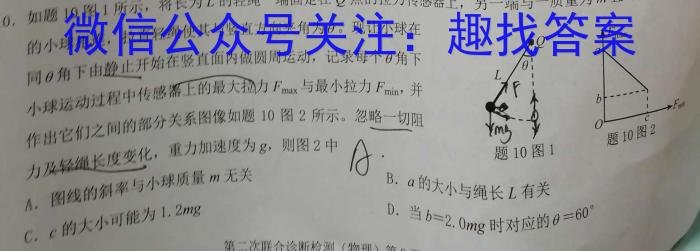 0. 如题10图1所示，将长为L的轻绳一端固定在O点的拉力传感器上，另一端与一质量为m
的小球
同θ角下由静止开始在竖直面内做圆周运动，记录每个θ角下
小球运动过程中传感器上的最大拉力Fmax与最小拉力Fmin，并
作出它们之间的部分关系图像如题10图2所示。忽略一切阻
力及轻绳长度变化，重力加速度为g，则图2中
A.
A. 图线的斜率与小球质量m无关
B. a的大小与绳长L有关
C. c的大小可能为1.2mg
D. 当b=2.0mg时对应的θ=60°
微信公众号关注：趣找答案
θ
L
F
mg
题10图1
b
O
c
Fmin
题10图2
第二次联合诊断检测（物理）第